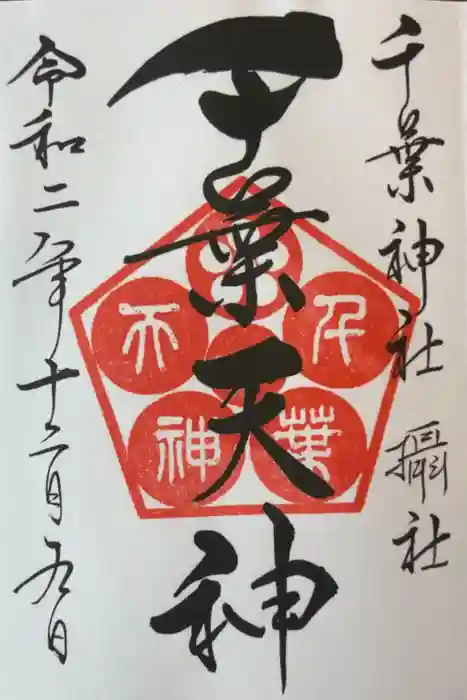 千葉神社 攝社
千葉天神
令和二年十二月九日
千葉天神